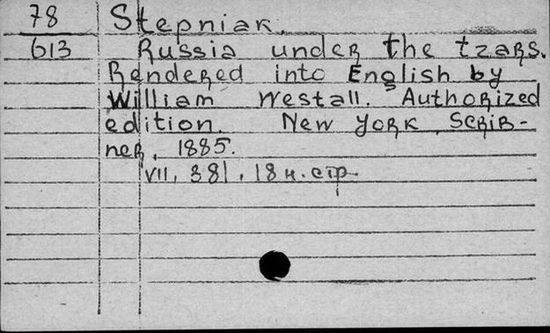 78 Stepniak.
613 Russia under the tzars.
Rendered into English by
William Westall. Authorized
edition. New York, Scrib-
ner, 1885.
VII, 381, 18 н. стр.